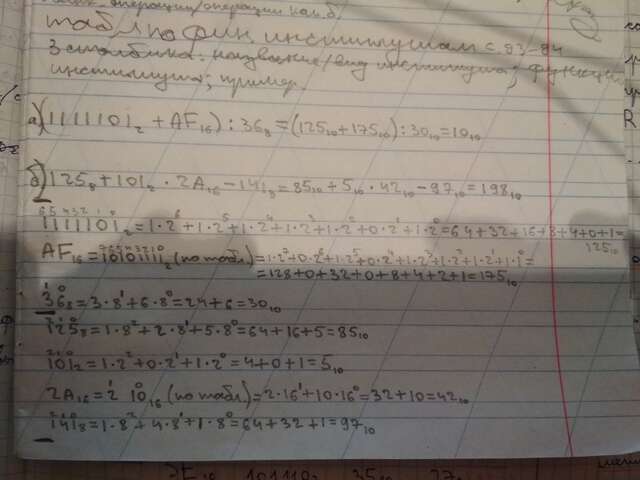 операции/операции кал. б.
табл. по фин. институтам с. 83-84
3 столбика: название/вид института; функции
института; пример.
а) (1111101₂ + AF₁₆) : 36₈ = (125₁₀ + 175₁₀) : 30₁₀ = 10₁₀
б) 125₈ + 101₂ · 2A₁₆ - 141₈ = 85₁₀ + 5₁₀ · 42₁₀ - 97₁₀ = 198₁₀
1111101₂ = 1·2⁶ + 1·2⁵ + 1·2⁴ + 1·2³ + 1·2² + 0·2¹ + 1·2⁰ = 64 + 32 + 16 + 8 + 4 + 0 + 1 =
125₁₀
AF₁₆ = 10101111₂ (по табл.) = 1·2⁷ + 0·2⁶ + 1·2⁵ + 0·2⁴ + 1·2³ + 1·2² + 1·2¹ + 1·2⁰ =
= 128 + 0 + 32 + 0 + 8 + 4 + 2 + 1 = 175₁₀
36₈ = 3·8¹ + 6·8⁰ = 24 + 6 = 30₁₀
125₈ = 1·8² + 2·8¹ + 5·8⁰ = 64 + 16 + 5 = 85₁₀
101₂ = 1·2² + 0·2¹ + 1·2⁰ = 4 + 0 + 1 = 5₁₀
2A₁₆ = 2 10₁₆ (по табл.) = 2·16¹ + 10·16⁰ = 32 + 10 = 42₁₀
141₈ = 1·8² + 4·8¹ + 1·8⁰ = 64 + 32 + 1 = 97₁₀